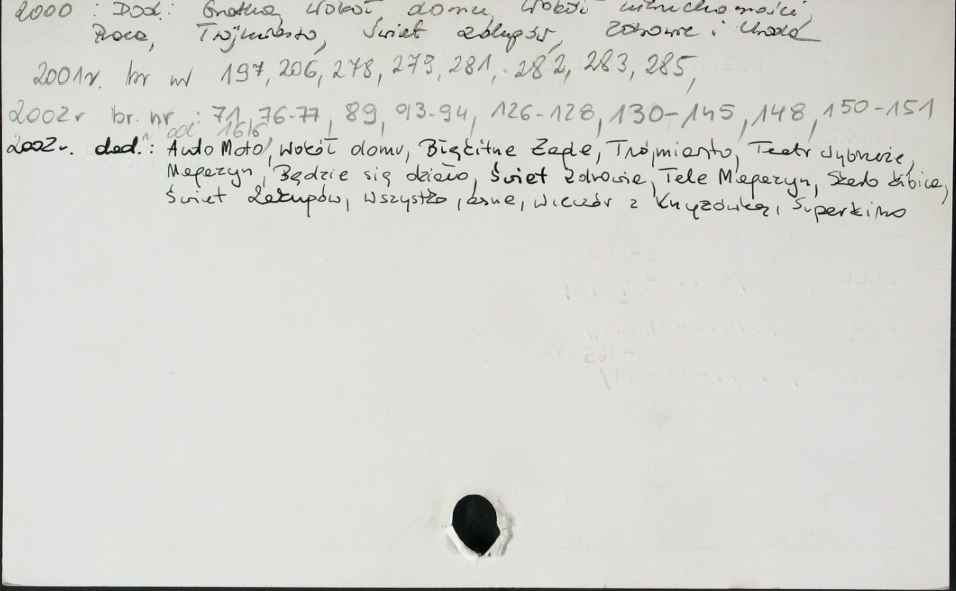 2000 : Dod.: Gratka, Wokół domu, Wokół nieruchomości,
Praca, Trójmiasto, Świat zakupów, Zdrowie i Uroda
2001r. br nr 197, 206, 278, 279, 281, 282, 283, 285,
2002r br. nr : 71, 76-77, 89, 93-94, 126-128, 130-145, 148, 150-151
od. 1616
2002r. dod.: Auto Moto, Wokół domu, Błękitne Żagle, Trójmiasto, Teatr Wybrzeże,
Magazyn, Będzie się działo, Świat zdrowia, Tele Magazyn, Szało kibica,
Świat Zakupów, Wszystko jasne, Wieczór z Krzyżówką, Superkino